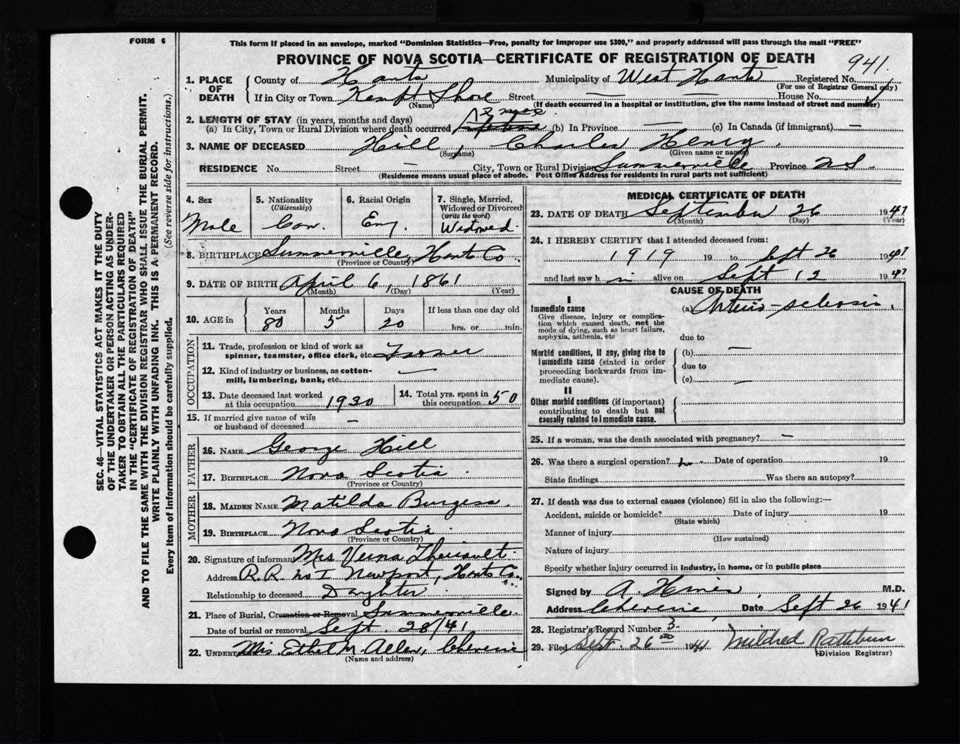 FORM 6
This form if placed in an envelope, marked "Dominion Statistics—Free, penalty for improper use $300," and properly addressed will pass through the mail "FREE"
PROVINCE OF NOVA SCOTIA—CERTIFICATE OF REGISTRATION OF DEATH
941
1. PLACE OF DEATH County of Hants Municipality of West Hants Registered No.
(For use of Registrar General only)
If in City or Town Kempt Shore Street — House No.
(Name) (If death occurred in a hospital or institution, give the name instead of street and number)
2. LENGTH OF STAY (in years, months and days)
(a) In City, Town or Rural Division where death occurred (b) In Province — (c) In Canada (if immigrant) —
3. NAME OF DECEASED Hill, Charles Henry.
(Surname) (Given name or names)
RESIDENCE No. Street — City, Town or Rural Division Summerville Province N.S.
(Residence means usual place of abode. Post Office Address for residents in rural parts not sufficient)
4. Sex Male
5. Nationality (Citizenship) Can.
6. Racial Origin Eng
7. Single, Married, Widowed or Divorced (write the word) Widowed
8. BIRTHPLACE Summerville, Hants Co.
(Province or Country)
9. DATE OF BIRTH April 6, 1861
(Month) (Day) (Year)
10. AGE in Years 80 Months 5 Days 20 If less than one day old hrs. or min.
OCCUPATION
11. Trade, profession or kind of work as spinner, teamster, office clerk, etc. Farmer
12. Kind of industry or business, as cotton-mill, lumbering, bank, etc. —
13. Date deceased last worked at this occupation 1930
14. Total yrs. spent in this occupation 50
15. If married give name of wife or husband of deceased —
FATHER
16. NAME George Hill
17. BIRTHPLACE Nova Scotia
(Province or Country)
MOTHER
18. MAIDEN NAME Matilda Burgess
19. BIRTHPLACE Nova Scotia
(Province or Country)
20. Signature of informant Mrs Verna Theriault
Address R.R. No 1 Newport, Hants Co.
Relationship to deceased Daughter
21. Place of Burial, Cremation or Removal Summerville
Date of burial or removal Sept 28/41
22. UNDERT Mrs. Ethel M Allen, Cheverie
(Name and address)
MEDICAL CERTIFICATE OF DEATH
23. DATE OF DEATH September 26 1941
(Month) (Day) (Year)
24. I HEREBY CERTIFY that I attended deceased from:
1919 19 to Sept 26 1941
and last saw h im alive on Sept 12 1941
CAUSE OF DEATH
I
Immediate cause (a) Arterio-sclerosis.
Give disease, injury or complication which caused death, not the mode of dying, such as heart failure, asphyxia, asthenia, etc.
due to
Morbid conditions, if any, giving rise to immediate cause (stated in order proceeding backwards from immediate cause). (b) —
due to
(c) —
II
Other morbid conditions (if important) contributing to death but not causally related to immediate cause.
25. If a woman, was the death associated with pregnancy? —
26. Was there a surgical operation? Date of operation 19
State findings Was there an autopsy?
27. If death was due to external causes (violence) fill in also the following:—
Accident, suicide or homicide? Date of injury 19
(State which)
Manner of injury
(How sustained)
Nature of injury
Specify whether injury occurred in industry, in home, or in public place
Signed by A. M.D.
Address Cheverie Date Sept 26 1941
28. Registrar's Record Number 3
29. Filed Sept. 26th 1941 Mildred Rathbun
(Division Registrar)
SEC. 46—VITAL STATISTICS ACT MAKES IT THE DUTY
OF THE UNDERTAKER OR PERSON ACTING AS UNDER-
TAKER TO OBTAIN ALL THE PARTICULARS REQUIRED
IN THE "CERTIFICATE OF REGISTRATION OF DEATH"
AND TO FILE THE SAME WITH THE DIVISION REGISTRAR WHO SHALL ISSUE THE BURIAL PERMIT.
WRITE PLAINLY WITH UNFADING INK. THIS IS A PERMANENT RECORD.
Every item of information should be carefully supplied. (See reverse side for instructions.)